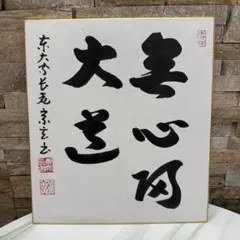 無心帰
大道
東大寺長老宗玄書